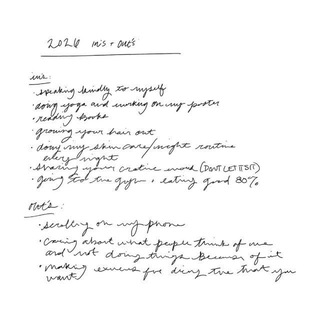 2026 ins + out's
ins:
· speaking kindly to myself
· doing yoga and working on my poster
· reading books
· growing your hair out
· doing my skin care/night routine
every night
· sharing your creative work (DON'T LET IT SIT)
· going to the gym + eating good 80%
out's:
· scrolling on my phone
· caring about what people think of me
and not doing things because of it
· making excuses for doing the that you
want